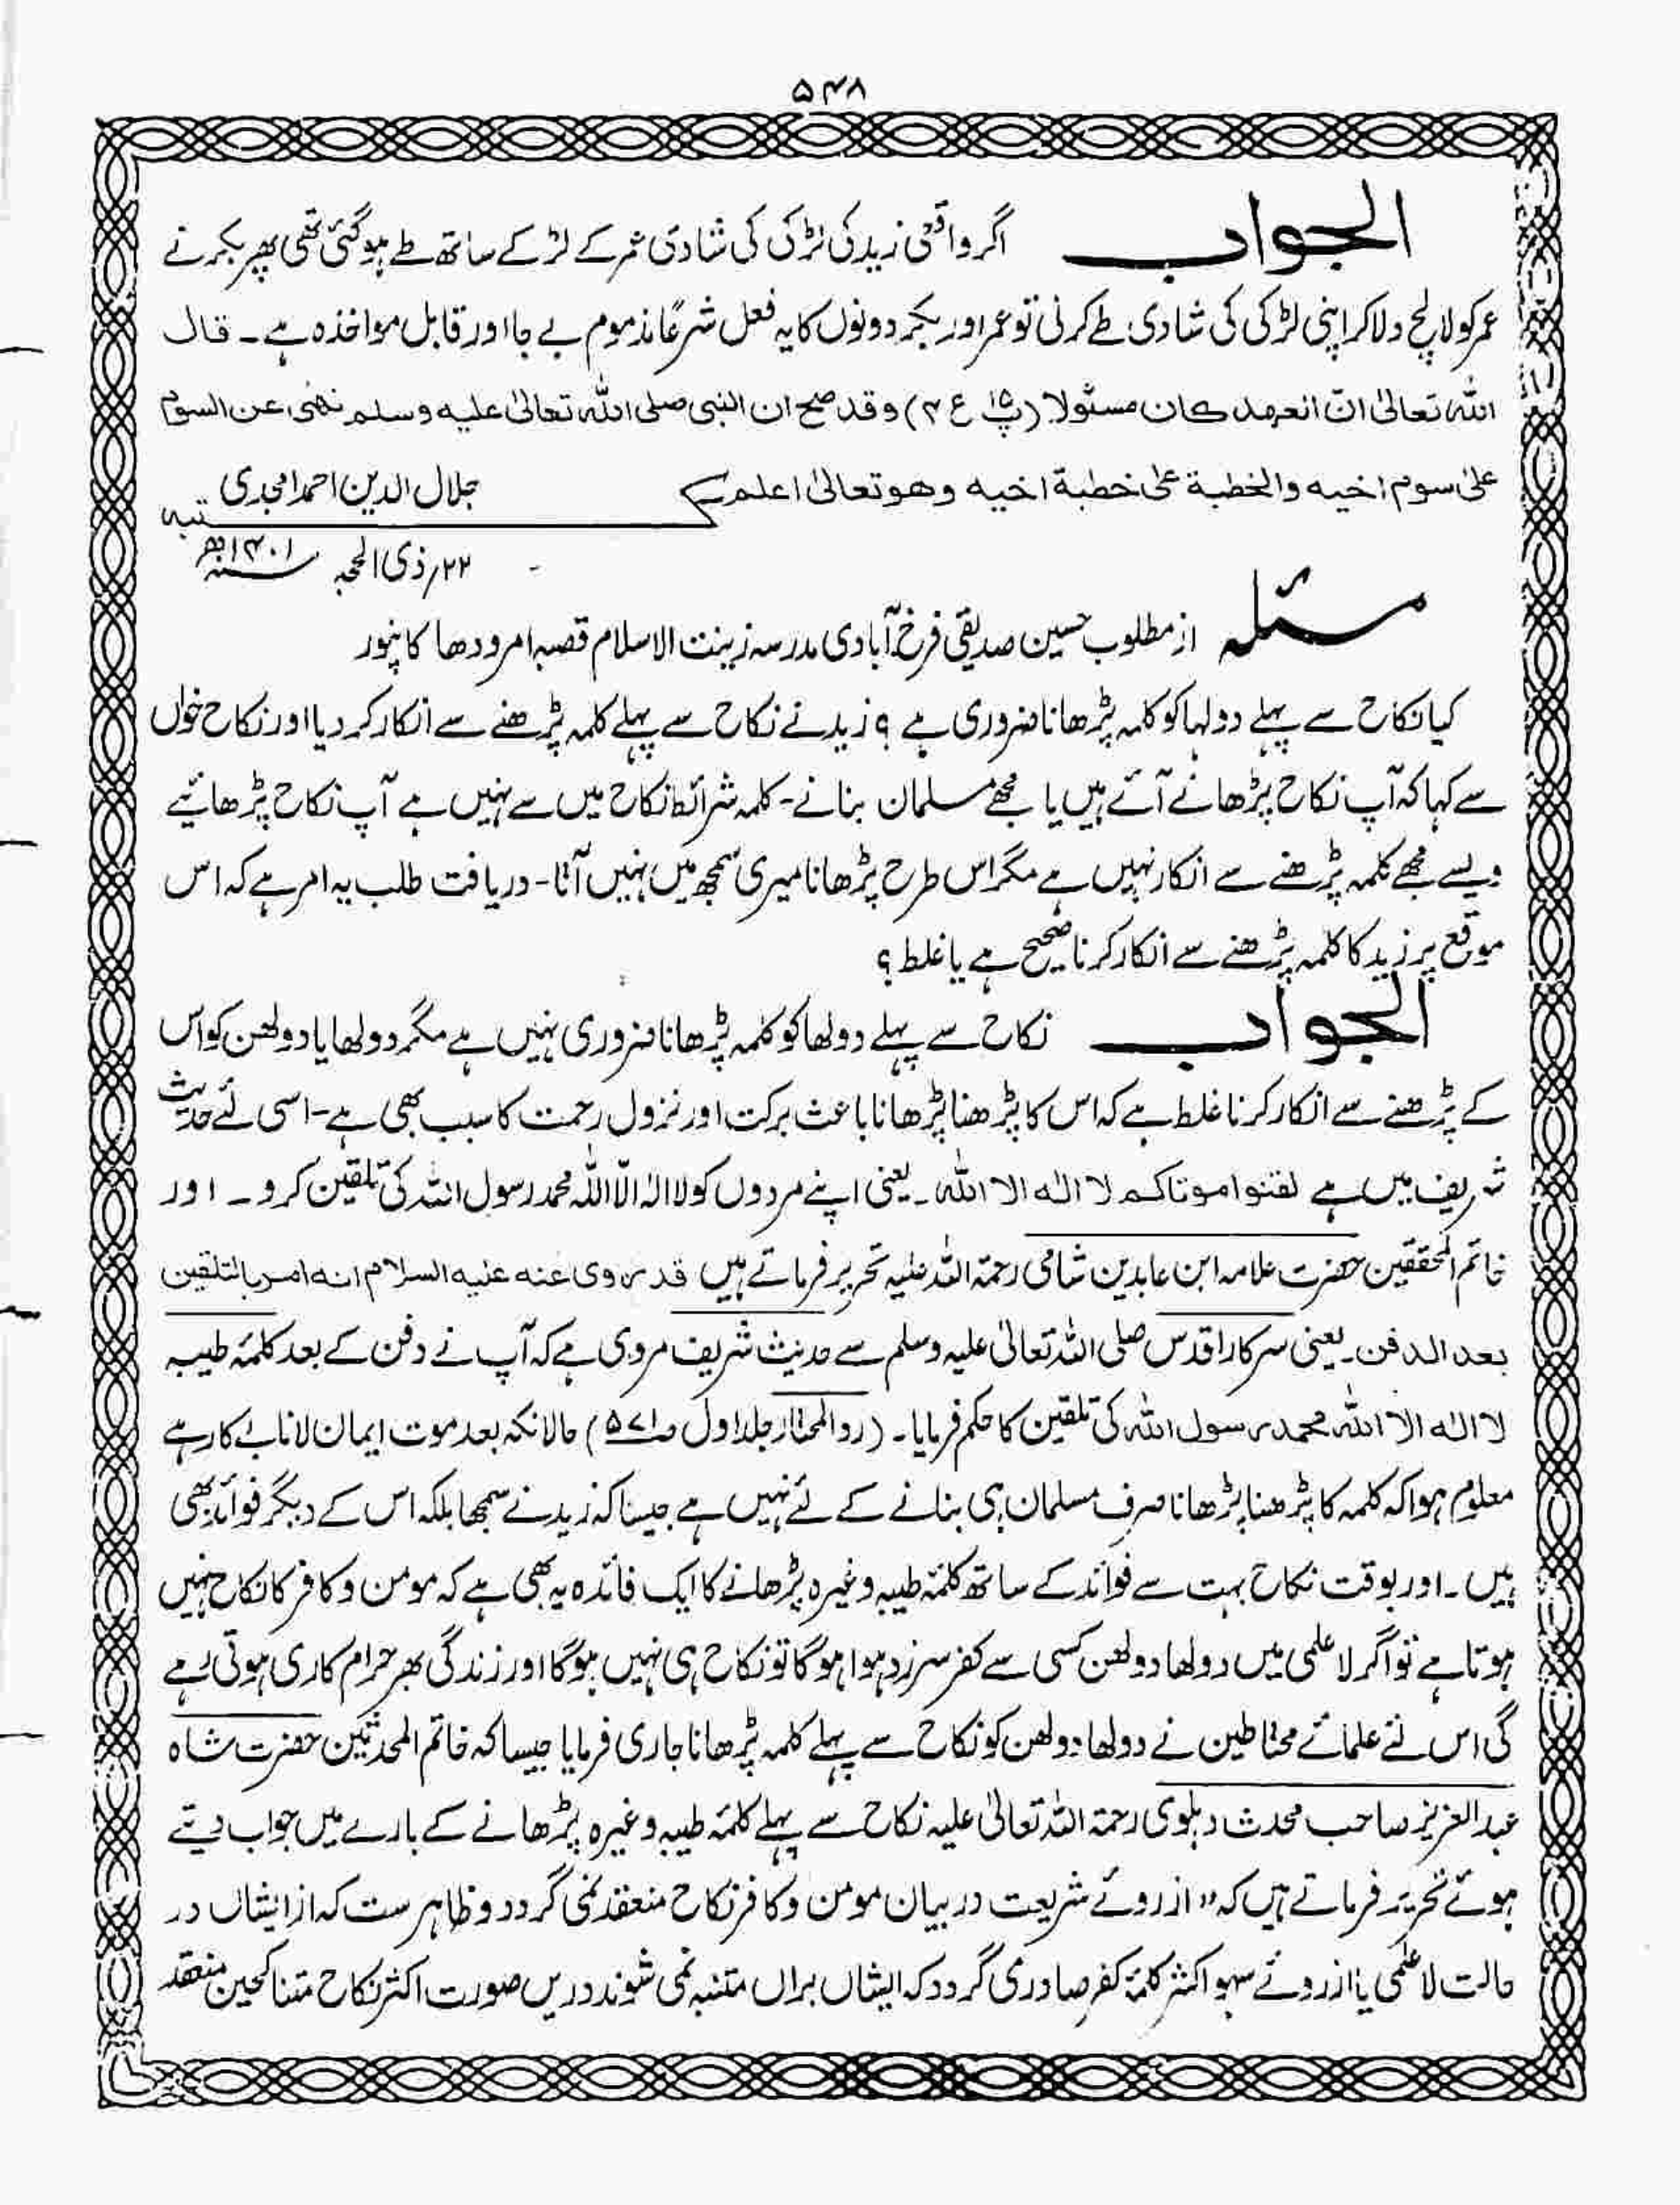 ۵۴۸
الجواب اگر واقعی زید کی لڑکی کی شادی عمر کے لڑکے ساتھ طے ہوگئی تھی پھر بکر نے
عمر کو لالچ دلا کر اپنی لڑکی کی شادی طے کرلی تو عمر اور بکر دونوں کا یہ فعل شرعًا مذموم بے جا اور قابل مواخذہ ہے۔ قال
اللہ تعالیٰ انّ العھد کان مسئولا (پ۱۵ ع ۴) وقد صح ان النبی صلی اللہ تعالیٰ علیہ وسلم نھیٰ عن السوم
علیٰ سوم اخیہ والخطبۃ علیٰ خطبۃ اخیہ وھو تعالیٰ اعلم
جلال الدین احمد امجدی
تبہ
۲۲؍ ذی الحجہ ۱۴۰۱ھ
مسئلہ از مطلوب حسین صدیقی فرخ آبادی مدرسہ زینت الاسلام قصبہ امرودھا کانپور
کیا نکاح سے پہلے دولہا کو کلمہ پڑھانا ضروری ہے ؟ زید نے نکاح سے پہلے کلمہ پڑھنے سے انکار کردیا اور نکاح خواں
سے کہا کہ آپ نکاح پڑھانے آئے ہیں یا مجھے مسلمان بنانے۔ کلمہ شرائط نکاح میں سے نہیں ہے آپ نکاح پڑھائیے
ویسے مجھے کلمہ پڑھنے سے انکار نہیں ہے مگر اس طرح پڑھانا میری سمجھ میں نہیں آتا۔ دریافت طلب یہ امر ہے کہ اس
موقع پر زید کا کلمہ پڑھنے سے انکار کرنا صحیح ہے یا غلط ؟
الجواب نکاح سے پہلے دولھا کو کلمہ پڑھانا ضروری نہیں ہے مگر دولھا یا دولھن کو اس
کے پڑھنے سے انکار کرنا غلط ہے کہ اس کا پڑھنا پڑھانا باعث برکت اور نزول رحمت کا سبب بھی ہے۔ اسی لئے حدیث
شریف میں ہے لقنوا موتاکم لا الہ الا اللہ۔ یعنی اپنے مردوں کو لا الہ الّا اللہ محمد رسول اللہ کی تلقین کرو۔ اور
خاتم المحققین حضرت علامہ ابن عابدین شامی رحمۃ اللہ علیہ تحریر فرماتے ہیں قد روی عنہ علیہ السلام انہ امر بالتلقین
بعد الدفن۔ یعنی سرکار اقدس صلی اللہ تعالیٰ علیہ وسلم سے حدیث شریف مروی ہے کہ آپ نے دفن کے بعد کلمۂ طیبہ
لا الہ الا اللہ محمد رسول اللہ کی تلقین کا حکم فرمایا۔ (رد المحتار جلد اول ص۵۷۱) حالانکہ بعد موت ایمان لانا بے کار ہے
معلوم ہوا کہ کلمہ کا پڑھنا پڑھانا صرف مسلمان ہی بنانے کے لئے نہیں ہے جیسا کہ زید نے سمجھا بلکہ اس کے دیگر فوائد بھی
ہیں۔ اور بوقت نکاح بہت سے فوائد کے ساتھ کلمۂ طیبہ وغیرہ پڑھانے کا ایک فائدہ یہ بھی ہے کہ مومن و کافر کا نکاح نہیں
ہوتا ہے تو اگر لاعلمی میں دولھا دولھن کسی سے کفر سرزد ہوا ہوگا تو نکاح ہی نہیں ہوگا اور زندگی بھر حرام کاری ہوتی رہے
گی اس لئے علمائے محتاطین نے دولھا دولھن کو نکاح سے پہلے کلمہ پڑھانا جاری فرمایا جیسا کہ خاتم المحدثین حضرت شاہ
عبد العزیز صاحب محدث دہلوی رحمۃ اللہ تعالیٰ علیہ نکاح سے پہلے کلمۂ طیبہ وغیرہ پڑھانے کے بارے میں جواب دیتے
ہوئے تحریر فرماتے ہیں کہ " از روئے شریعت درمیان مومن و کافر نکاح منعقد نمی گردد و ظاہر ست کہ از ایشاں در
حالت لاعلمی یا از روئے سہو اکثر کلمۂ کفر صادر می گردد کہ ایشاں براں متنبہ نمی شوند دریں صورت اکثر نکاح متناکحین منعقد